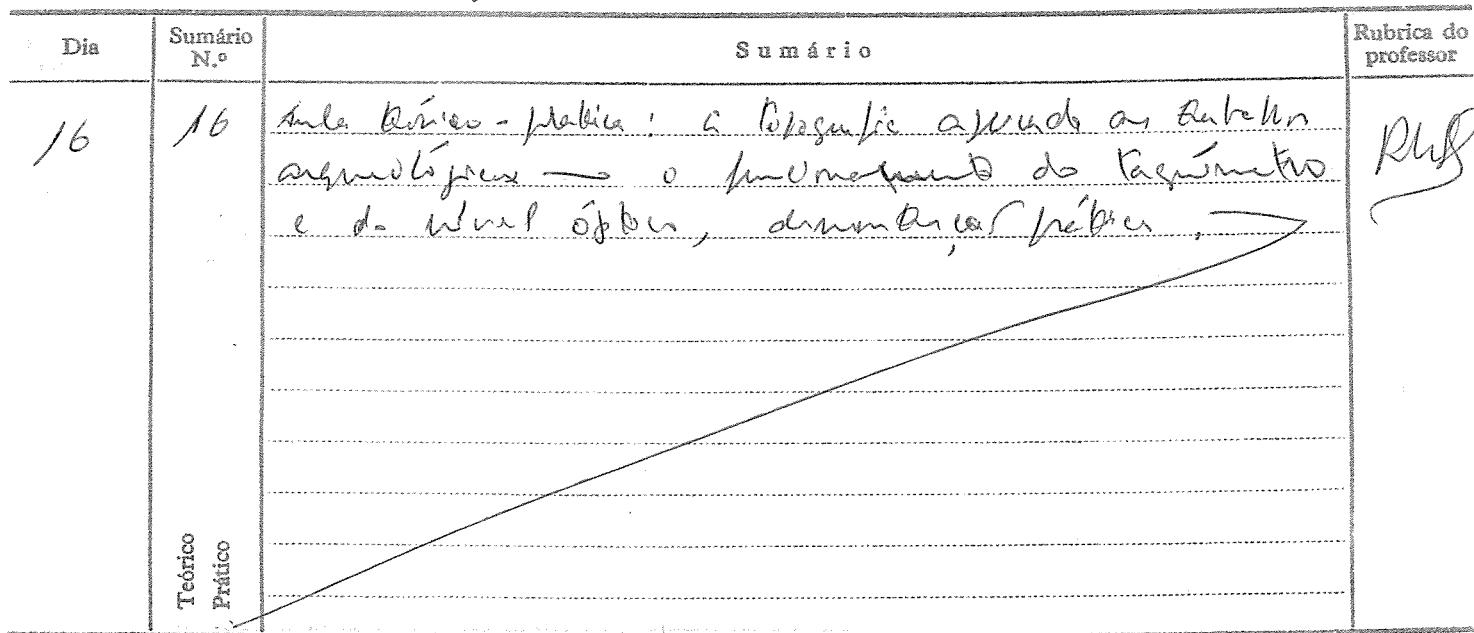 Dia
Sumário N.º
Sumário
Rubrica do professor
16
16
Aula teórico-prática: a topografia aplicada aos trabalhos
arqueológicos — o funcionamento do taqueómetro
e do nível óptico, demonstração prática.
Teórico
Prático